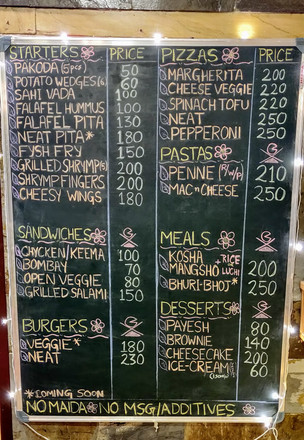 STARTERS PRICE
PAKODA (5pcs) 50
POTATO WEDGES 60
SAHI VADA 100
FALAFEL HUMMUS 100
FALAFEL PITA 130
NEAT PITA* 180
FYSH FRY 150
GRILLED SHRYMP(6) 200
SHRYMP FINGERS 200
CHEESY WINGS 180
SANDWICHES
CHYCKEN/KEEMA 100
BOMBAY 70
OPEN VEGGIE 80
GRILLED SALAMI 150
BURGERS
VEGGIE* 180
NEAT 230
*COMING SOON
PIZZAS PRICE
MARGHERITA 200
CHEESE VEGGIE 220
SPINACH TOFU 220
NEAT 250
PEPPERONI 250
PASTAS
PENNE (R/W/P) 210
MAC n CHEESE 250
MEALS
KOSHA MANGSHO + RICE LUCHI 200
BHURI-BHOJ* 250
DESSERTS
PAYESH 80
BROWNIE 140
CHEESECAKE 200
ICE-CREAM 60
NO MAIDA NO MSG/ADDITIVES